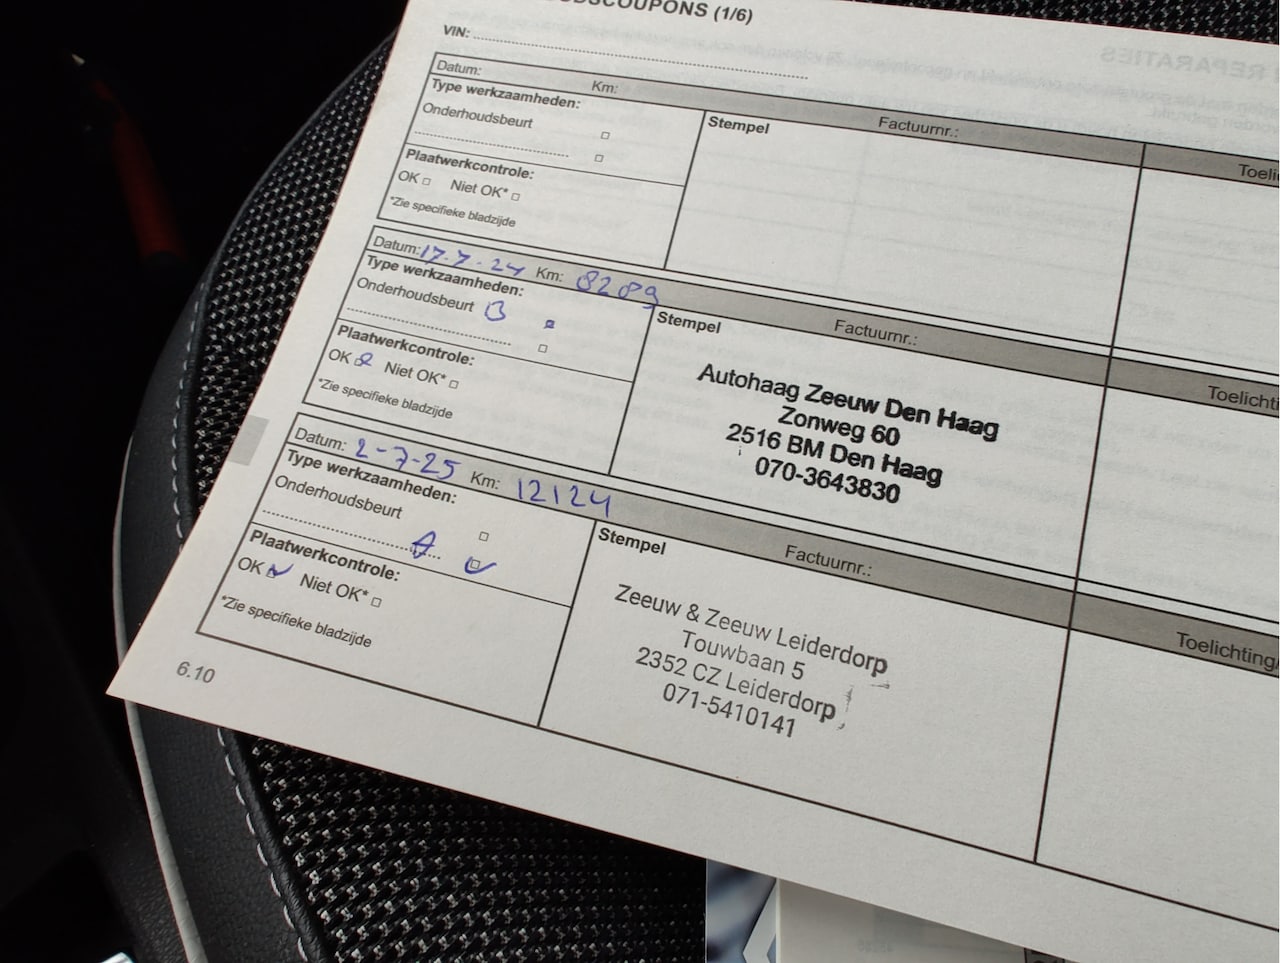 DSCOUPONS (1/6)
VIN:
Datum: Km: Factuurnr.:
Type werkzaamheden: Stempel Toeli
Onderhoudsbeurt
Plaatwerkcontrole:
OK Niet OK*
*Zie specifieke bladzijde
Datum: 17-7-24 Km: 8209 Factuurnr.:
Type werkzaamheden: Stempel Toelichti
Onderhoudsbeurt B
Plaatwerkcontrole:
OK Niet OK*
*Zie specifieke bladzijde
Autohaag Zeeuw Den Haag
Zonweg 60
2516 BM Den Haag
070-3643830
Datum: 2-7-25 Km: 12124 Factuurnr.:
Type werkzaamheden: Stempel Toelichting/
Onderhoudsbeurt
A
Plaatwerkcontrole:
OK Niet OK*
*Zie specifieke bladzijde
Zeeuw & Zeeuw Leiderdorp
Touwbaan 5
2352 CZ Leiderdorp
071-5410141
6.10
REPARATIES